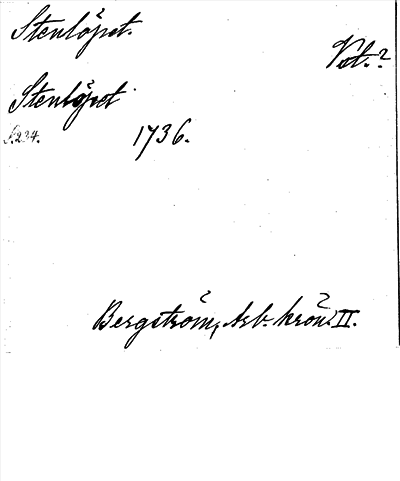 Stenlöpet.
Vst.?
Stenlöpet
S. 234.
1736.
Bergström, Arb. krön. II.